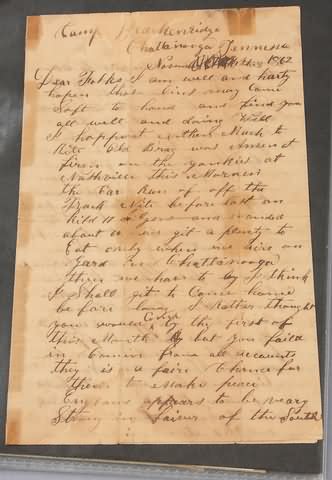 Camp Breckenridge
Chattanooga Tennessee
1862
Dear Folks I am well and harty
hopin that this may Come
Saft to hand and find you
all well and doing Well
I happont nothin Much to
Rite Old Brag was
firen on the yankies at
Nashville this Morneing
the Car Run of off the
Track Nite before last an
Kild 10 Sogers and wounded
about we git a plenty to
Eat only when we air on
gard in Chattanooga
then we have to by I think
I Shall git to Come home
be fore long I Rather thought
you would Come by the first of
this Month but you faild
in Comin from all accounts
they is a fair Chance for
them to Make peac
England appears to be veary
Strong in faivor of the South